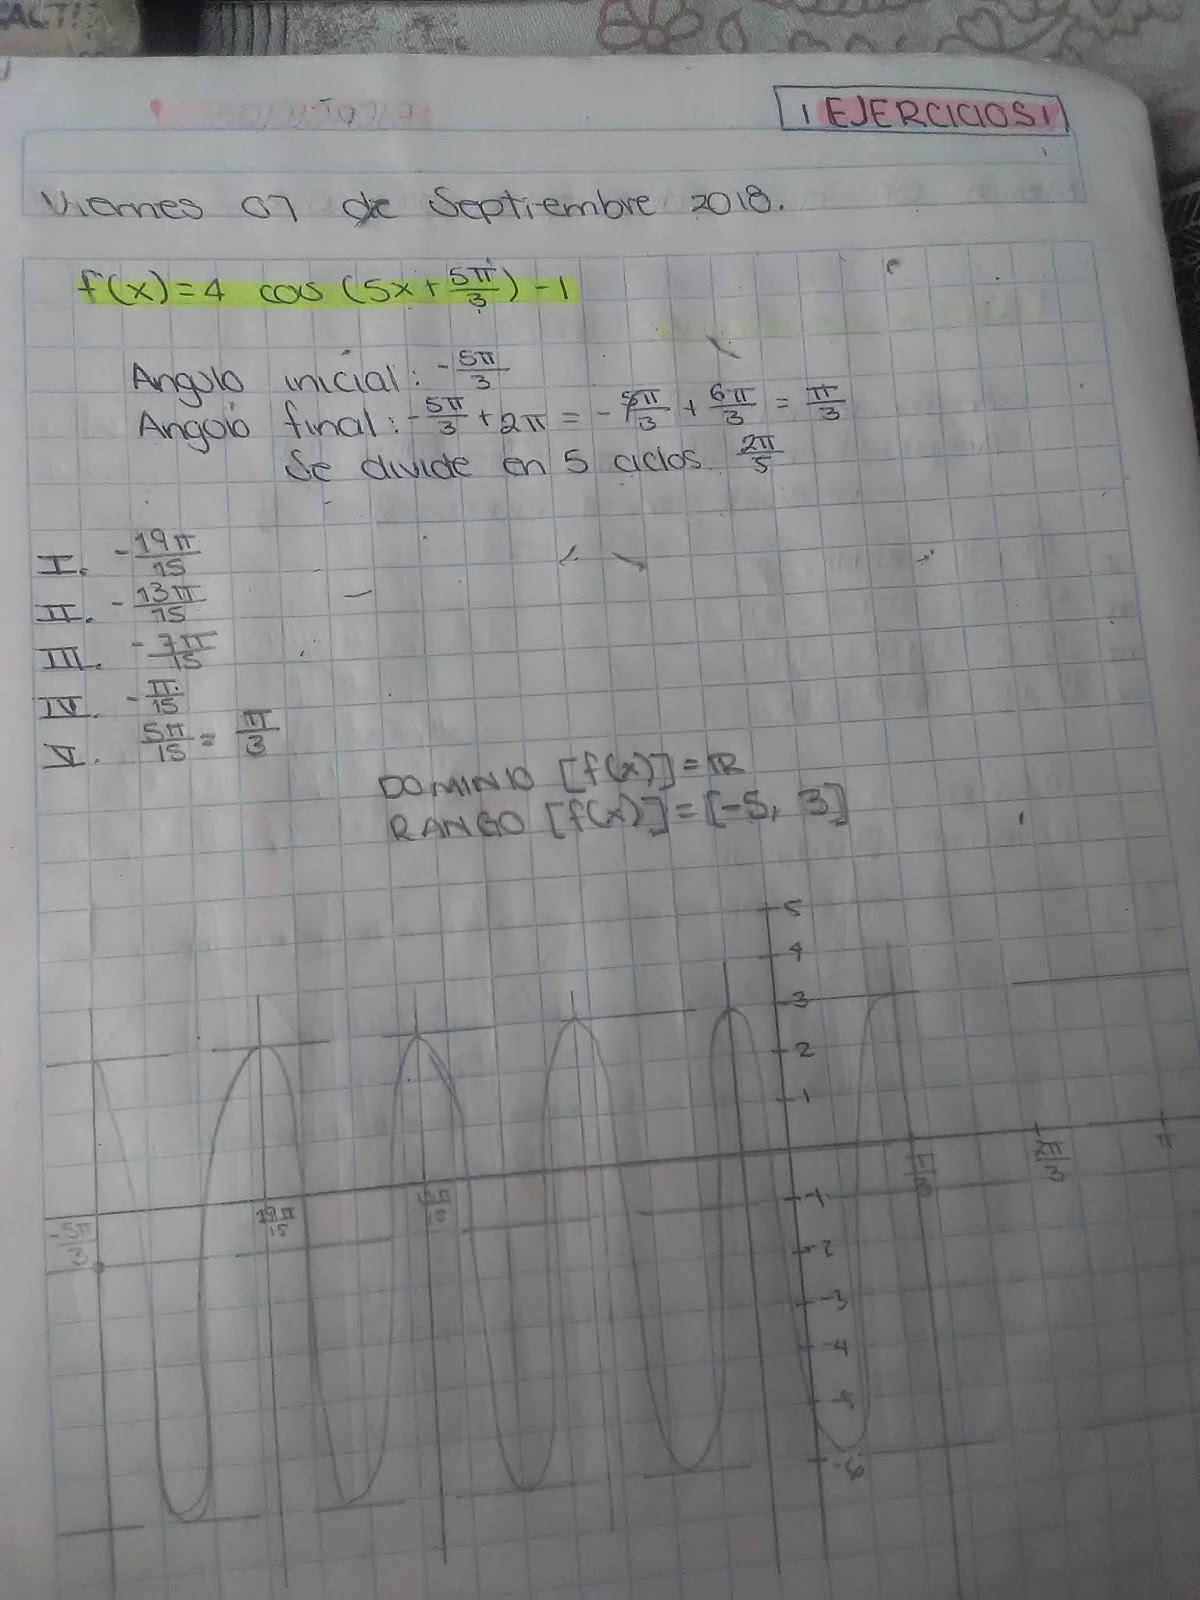 ¡EJERCICIOS!
Viernes 07 de Septiembre 2018.
f(x)=4 cos (5x+5π/3)-1
Angulo inicial: -5π/3
Angulo final: -5π/3+2π = -5π/3 + 6π/3 = π/3
Se divide en 5 ciclos. 2π/5
I. -19π/15
II. -13π/15
III. -7π/15
IV. -π/15
V. 5π/15 = π/3
DOMINIO [f(x)]=ℝ
RANGO [f(x)]=[-5, 3]
5
4
3
2
1
-5π/3
19π/15
π/3
2π/3
π
-1
-2
-3
-4
-6